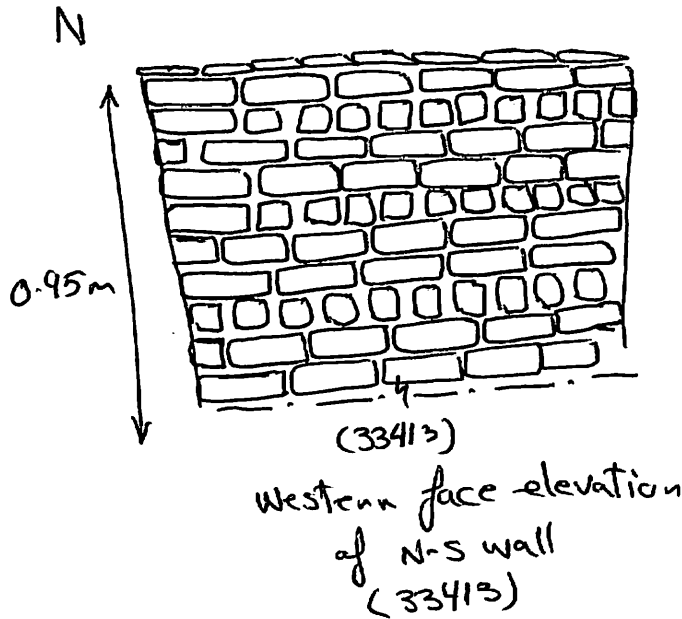 N
0.95m
(33413)
Western face elevation
of N-S wall
(33413)